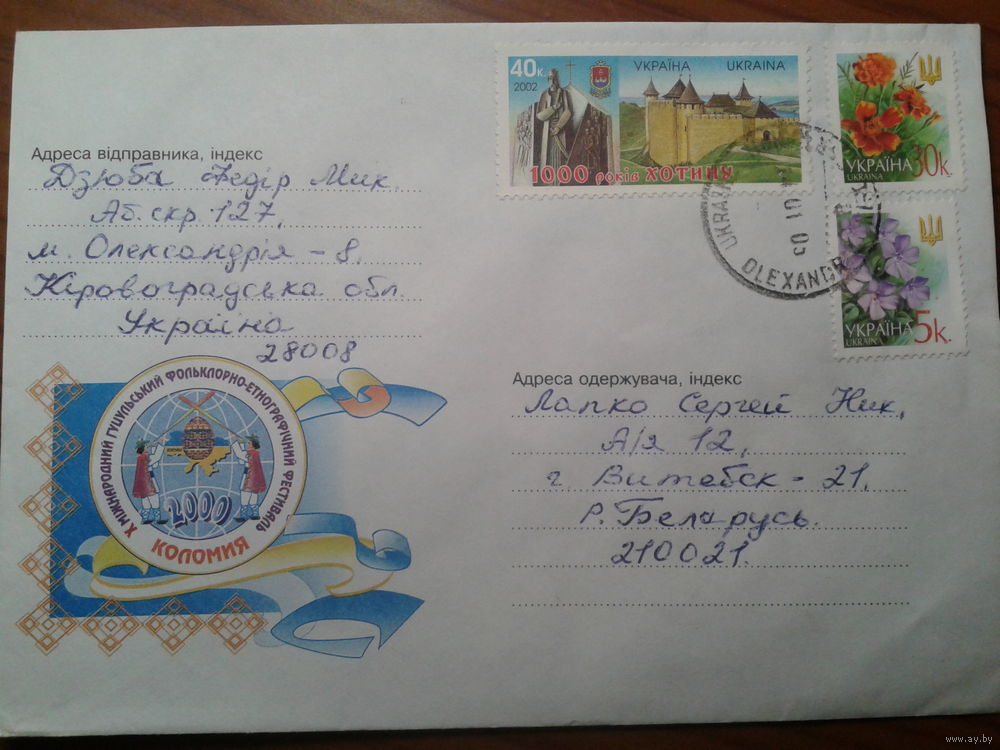 40к.
2002
УКРАЇНА UKRAINA
1000 років ХОТИНУ
УКРАЇНА 30к.
UKRAINA
УКРАЇНА 5к.
UKRAINA
UKRAIN
01 03
OLEXANDR
Адреса відправника, індекс
Дзюба Федір Мик.
Аб.скр.127,
м. Олександрія-8,
Кіровоградська обл.
Україна
28008
X МІЖНАРОДНИЙ ГУЦУЛЬСЬКИЙ ФОЛЬКЛОРНО-ЕТНОГРАФІЧНИЙ ФЕСТИВАЛЬ
2000
КОЛОМИЯ
Адреса одержувача, індекс
Лапко Сергей Ник,
А/я 12,
г. Витебск-21,
Р. Беларусь.
210021.
www.ay.by